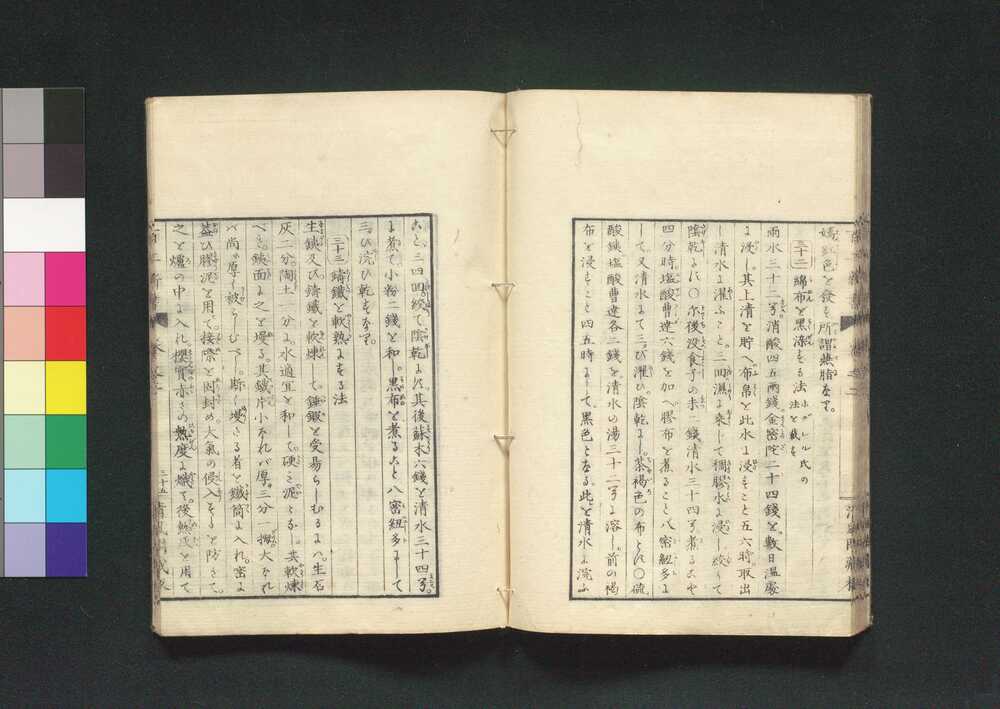 嬌紅色を發す所謂燕脂なり。
三十二 綿布を黒染する法
法を載す
雨水三十二㕮消酸四五両錢金密陀二十四錢を數日温處
に浸し其上清を貯へ布帛を此水に浸すこと五六時取出
し清水に濯ふこと三回濕に乗して稠膠水に浸し絞りて
陰乾す〇尓後没食子の末 錢清水三十四㕮煮るや
四分時塩酸曹達六錢を加へ膠布を煮ること八密紐多に
して又清水にて三び濯ひ陰乾にし茶褐色の布となる〇硫
酸鉄塩酸曹達各二錢を清水の湯三十二㕮に溶し前の褐
布を浸すこと四五時にして黒色となる此を清水に浣ふ
こと三四回絞て陰乾に其後蘇木六錢を清水三十四㕮
に煮て小粉二錢を和し黒布を煮ること八密紐多にして
三び浣ひ乾すなり。
三十三 鑄鐵を軟熟にする法
生鉄及び鑄鐵を軟煉して錘鍛を受易らしむるには生石
灰二分陶土一分に水適宜を和して硬き泥となし其軟煉
べき鉄面に之を塗る其鐵片小なれバ厚三分一拇大なれ
バ尚ほ厚く被らしむべし斯く塗たる者を鐵筒に入れ密に
蓋ひ膠泥を用て接際を固封め大氣の侵入するを防ぎて
之を爐の中に入れ櫻實赤きの熱度に熾て後熱灰を用て
二十五